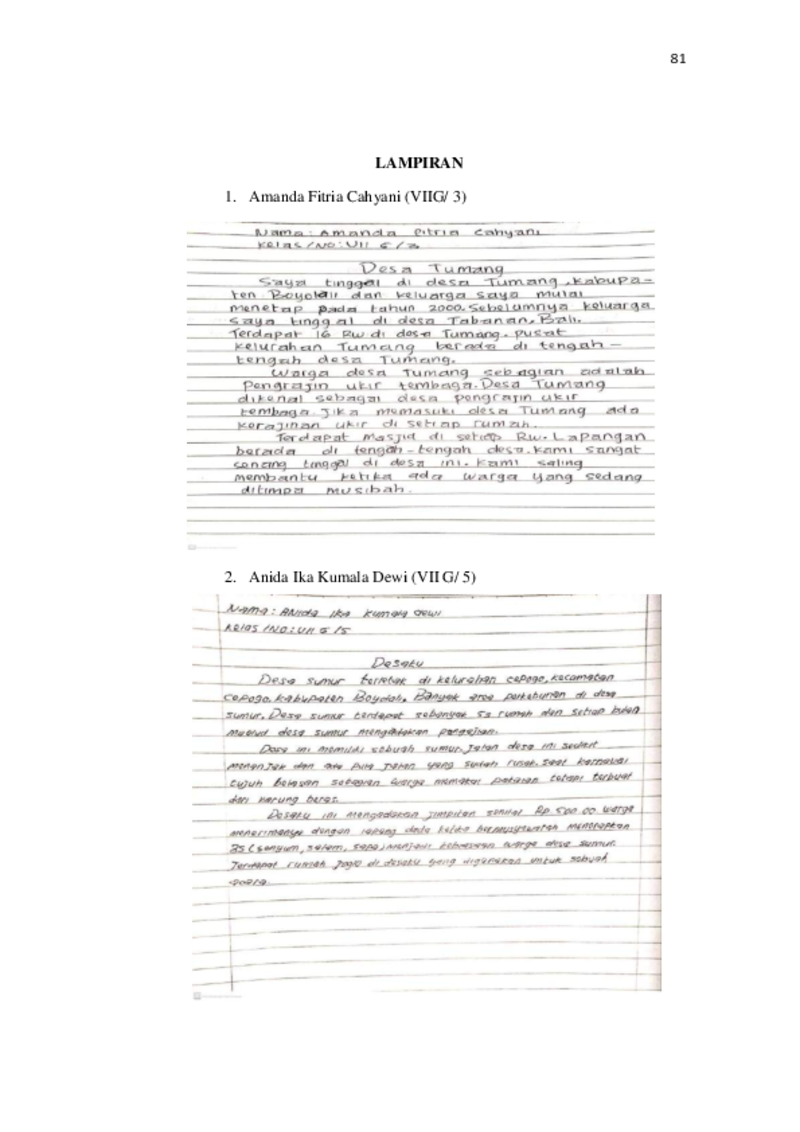 81
LAMPIRAN
1. Amanda Fitria Cahyani (VIIG/ 3)
Nama : Amanda Fitria Cahyani
Kelas /NO : VII G/3
Desa Tumang
Saya tinggal di desa Tumang, kabupa-
ten Boyolali dan keluarga saya mulai
menetap pada tahun 2000. Sebelumnya keluarga
saya tinggal di desa Tabanan, Bali.
Terdapat 16 Rw di desa Tumang. pusat
kelurahan Tumang berada di tengah -
tengah desa Tumang.
Warga desa Tumang sebagian adalah
Pengrajin ukir tembaga. Desa Tumang
dikenal sebagai desa pengrajin ukir
tembaga. Jika memasuki desa Tumang ada
kerajinan ukir di setiap rumah.
Terdapat Masjid di setiap Rw. Lapangan
berada di tengah-tengah desa. kami sangat
senang tinggal di desa ini. kami saling
membantu ketika ada warga yang sedang
ditimpa musibah.
2. Anida Ika Kumala Dewi (VII G/ 5)
Nama : ANida Ika Kumala Dewi
Kelas /NO : VII G /5
Desaku
Desa sumur terletak di kelurahan cepogo, kecamatan
cepogo, kabupaten Boyolali. Banyak area perkebunan di desa
sumur. Desa sumur terdapat sebanyak 52 rumah dan setiap bulan
maulud desa sumur mengadakan pengajian.
Desa ini memiliki sebuah sumur. Jalan desa ini sedikit
menanjak dan ada pula jalan yang sudah rusak. saat karnaval
tujuh belasan sebagian warga memakai pakaian terbuat
dari karung beras.
Desaku ini mengadakan jimpitan senilai Rp. 500.00 warga
menerimanya dengan lapang dada ketika bermusyawarah menerapkan
3S (senyum, salam, sapa) menjadi kebiasaan warga desa sumur.
Terdapat rumah joglo di desaku yang digunakan untuk sebuah